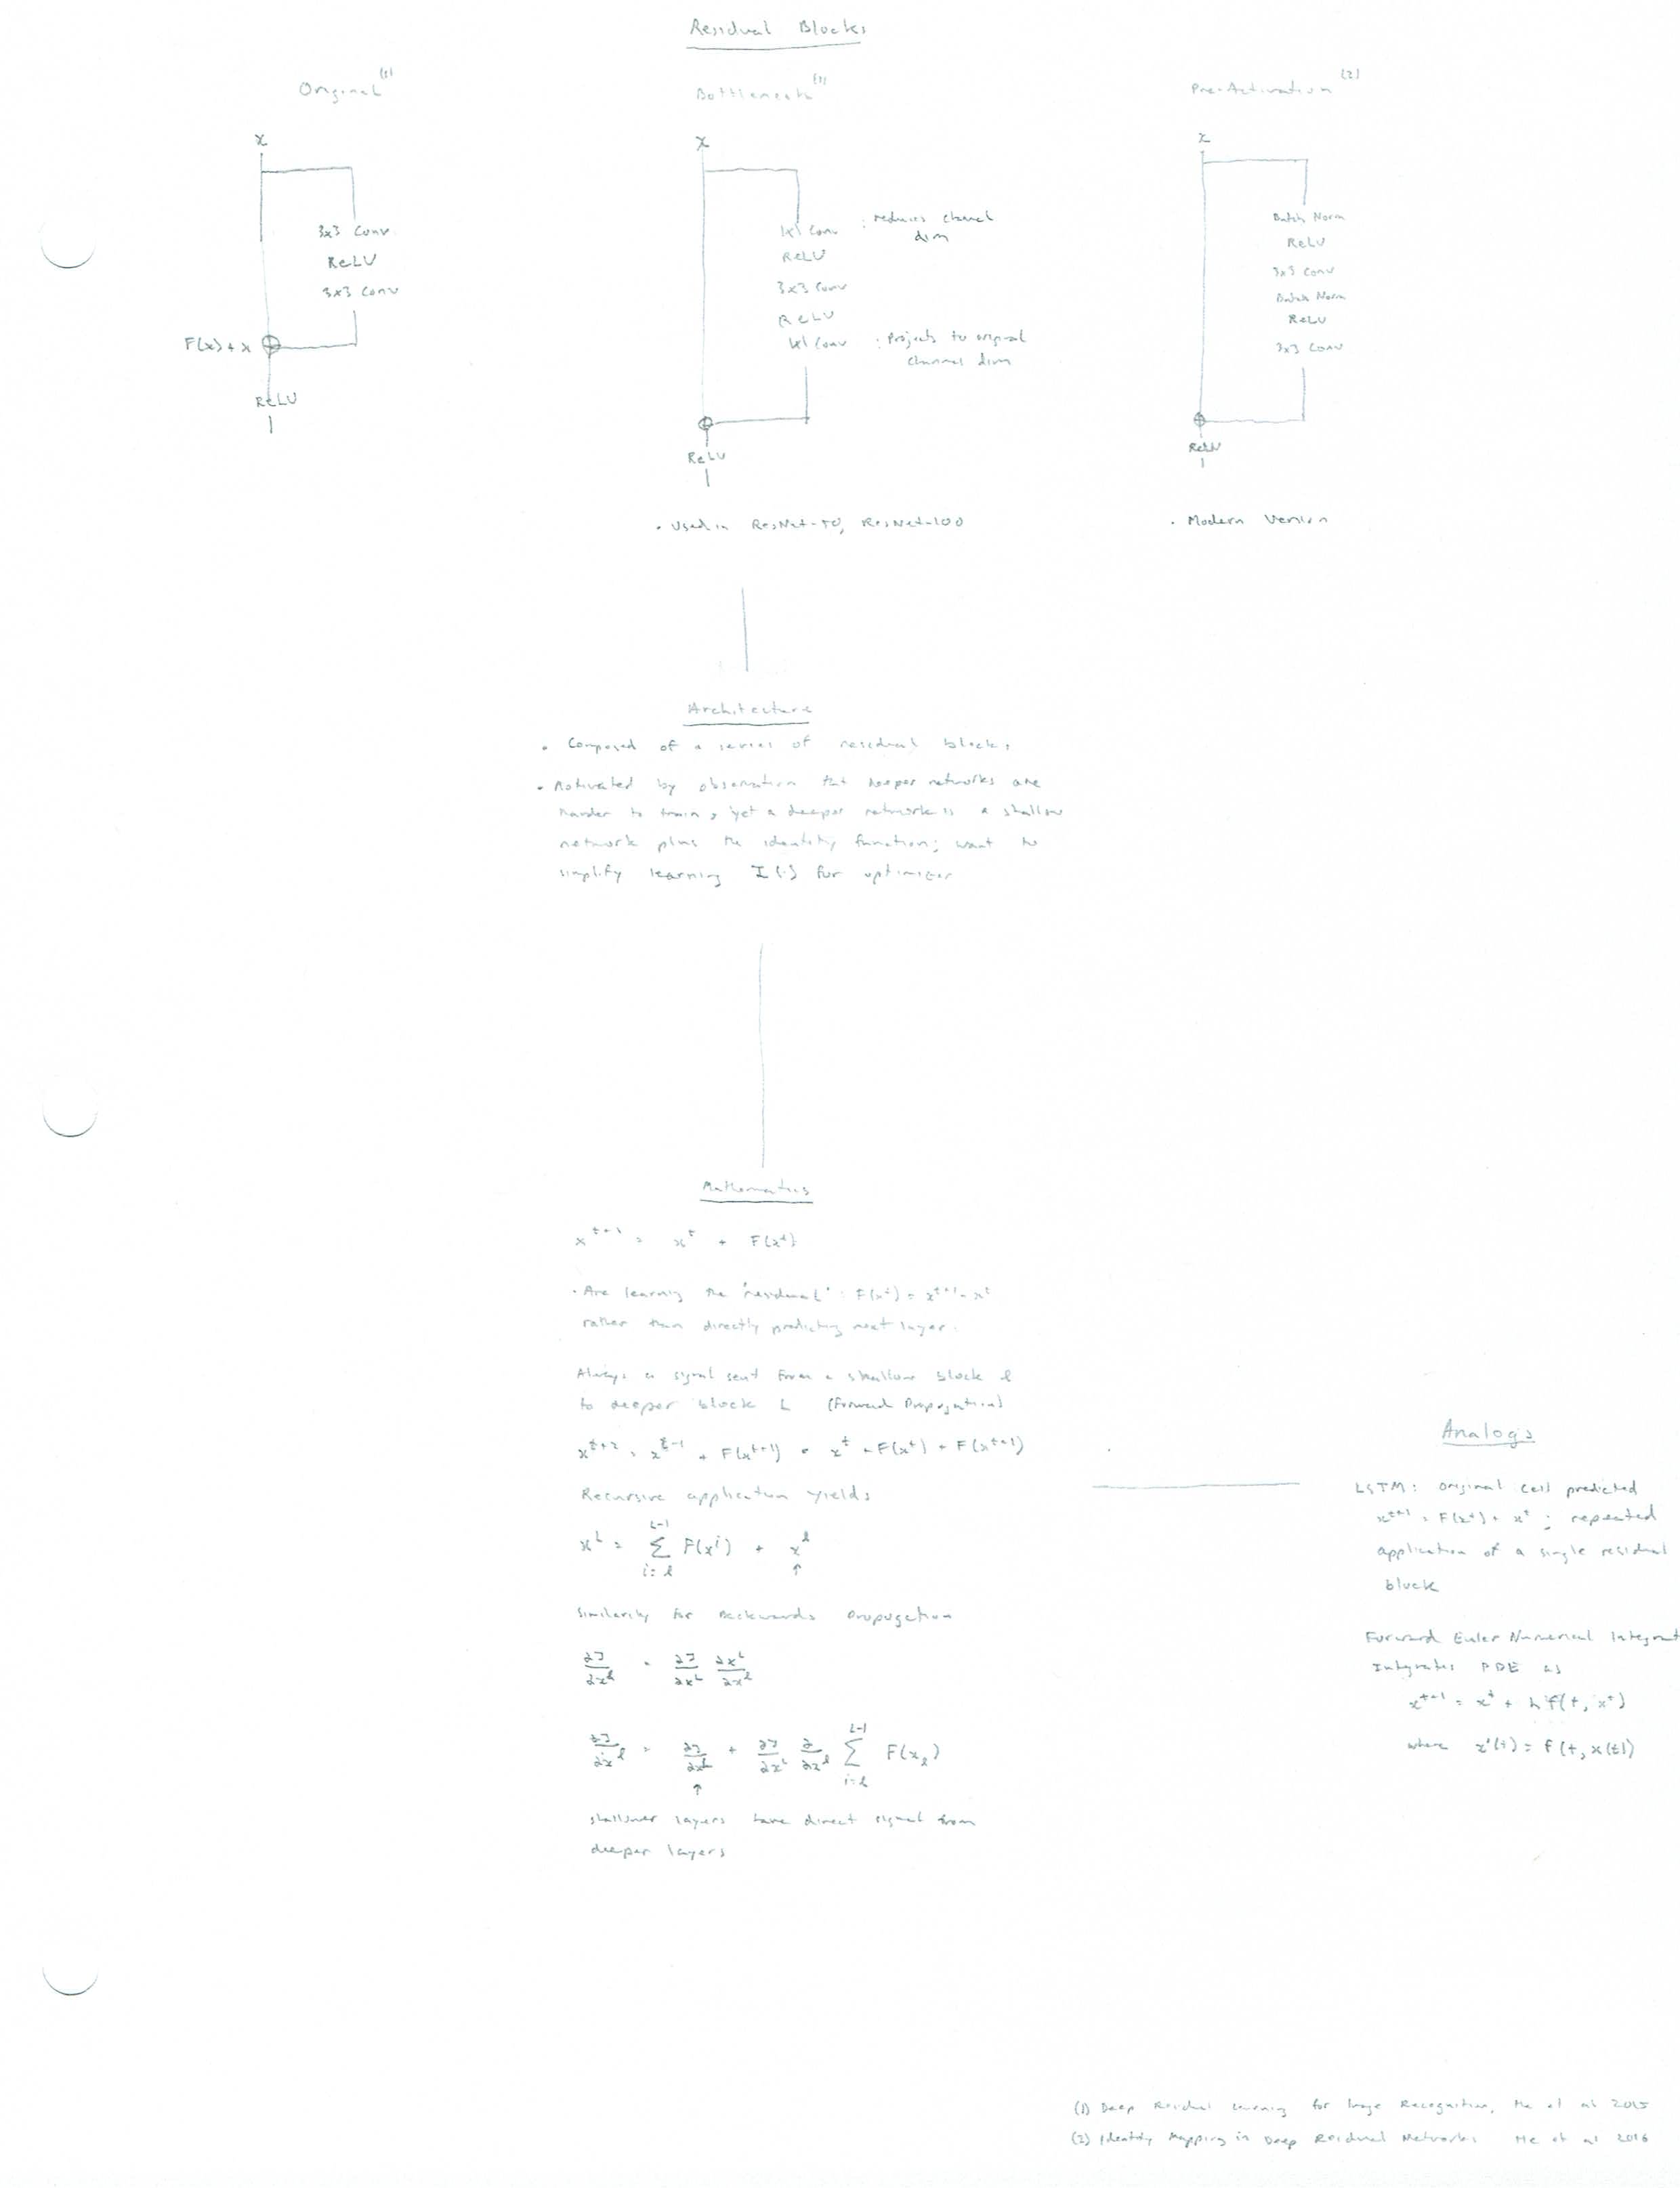 Residual Blocks
Original (1)
x
3x3 Conv
ReLU
3x3 Conv
F(x) + x
ReLU
Bottleneck (1)
x
1x1 Conv : reduces channel
dim
ReLU
3x3 Conv
ReLU
1x1 Conv : Projects to original
channel dim
ReLU
• Used in ResNet-50, ResNet-100
Pre-Activation (2)
x
Batch Norm
ReLU
3x3 Conv
Batch Norm
ReLU
3x3 Conv
ReLU
• Modern Version
Architecture
• Composed of a series of residual blocks
• Motivated by observation that deeper networks are
harder to train, yet a deeper network is a shallow
network plus the identity function; want to
simplify learning I(·) for optimizer
Mathematics
x^{t+1} = x^t + F(x^t)
• Are learning the "residual": F(x^t) = x^{t+1} - x^t
rather than directly predicting next layer.
Always a signal sent from a shallow block l
to deeper block L (Forward Propagation)
x^{t+2} = x^{t-1} + F(x^{t+1}) = x^t + F(x^t) + F(x^{t+1})
Recursive application yields
x^L = ∑_{i=l}^{L-1} F(x^i) + x^l
↑
Similarly for Backwards Propagation
∂J/∂x^l = ∂J/∂x^L ∂x^L/∂x^l
∂J/∂x^l = ∂J/∂x^L + ∂J/∂x^L ∂/∂x^l ∑_{i=l}^{L-1} F(x_l)
↑
shallower layers have direct signal from
deeper layers
Analogs
LSTM: Original cell predicted
x^{t+1} = F(x^t) + x^t ; repeated
application of a single residual
block
Forward Euler Numerical Integrat
Integrates PDE as
x^{t+1} = x^t + h f(t, x^t)
where x'(t) = f(t, x(t))
(1) Deep Residual Learning for Image Recognition, He et al 2015
(2) Identity Mapping in Deep Residual Networks He et al 2016